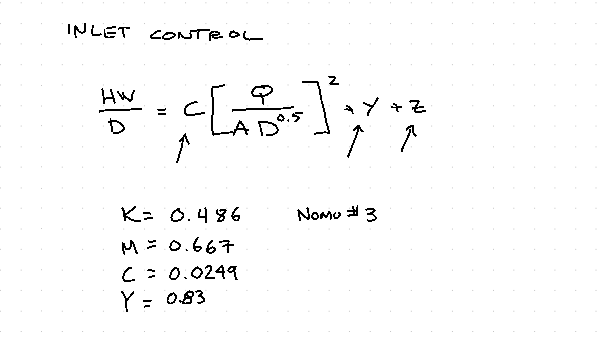 INLET CONTROL
HW/D = C [Q/AD^0.5]^2 + Y + Z
K = 0.486 Nomo #3
M = 0.667
C = 0.0249
Y = 0.83